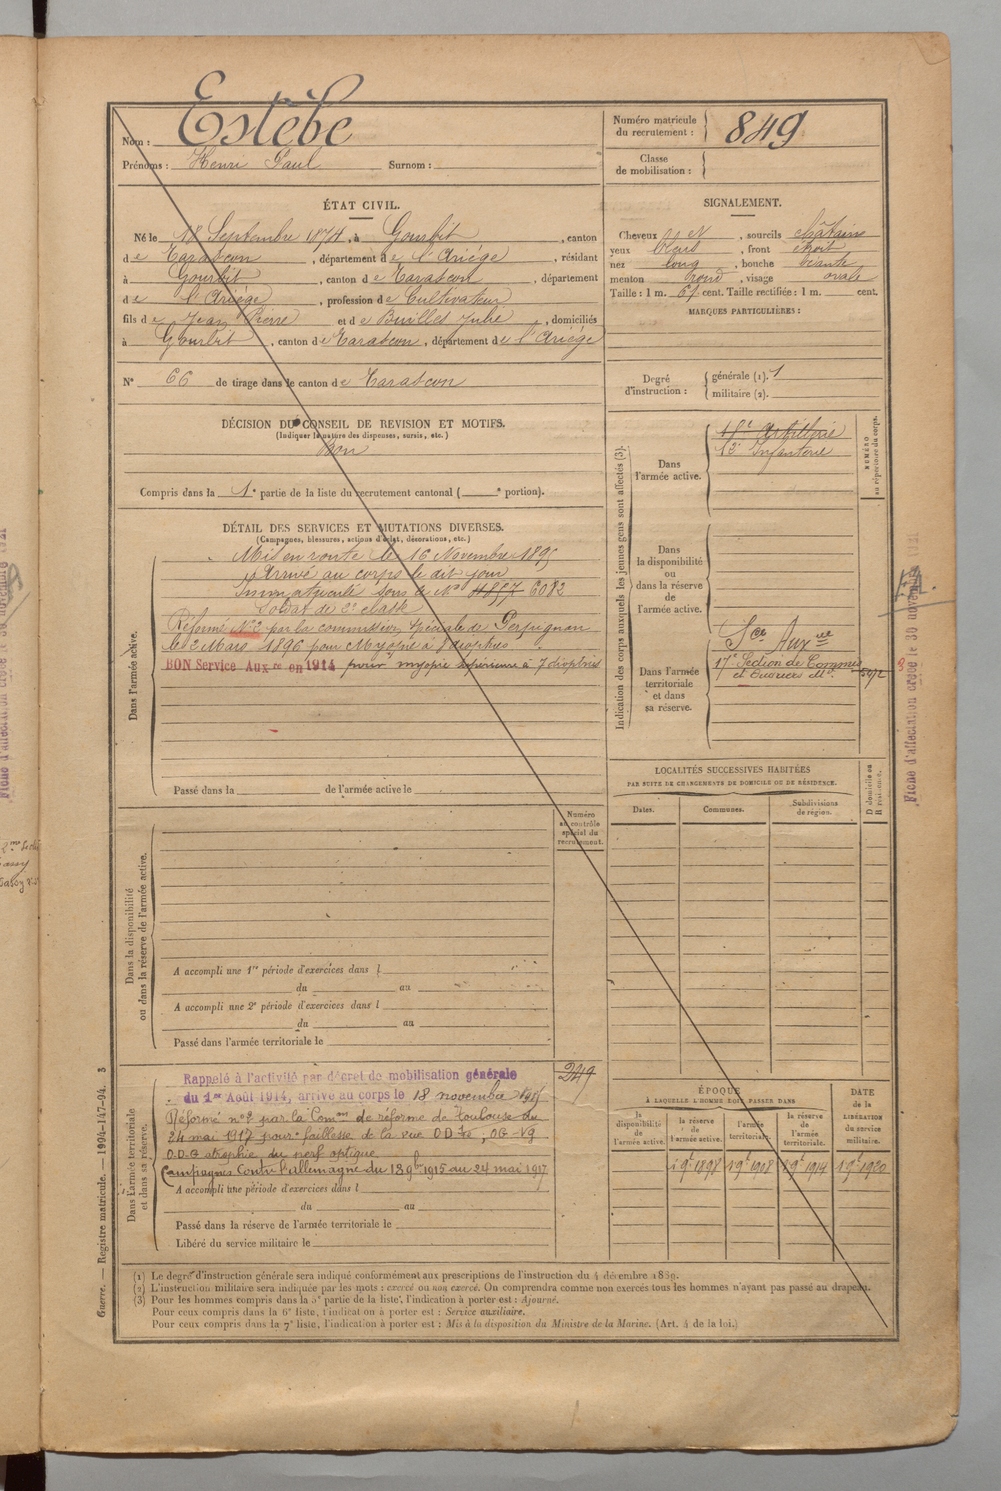 Nom : Estèbe
Prénoms : Henri Paul Surnom :
Numéro matricule du recrutement : 849
Classe de mobilisation :
ÉTAT CIVIL.
Né le 18 Septembre 1874, à Gourbit, canton
de Tarascon, département de l'Ariége, résidant
à Gourbit, canton de Tarascon, département
de l'Ariége, profession de Cultivateur
fils de Jean Pierre et de Builles Julie, domiciliés
à Gourbit, canton de Tarascon, département de l'Ariége
N° 66 de tirage dans le canton de Tarascon
SIGNALEMENT.
Cheveux , sourcils châtains
yeux bleus, front étroit
nez long, bouche
menton rond, visage ovale
Taille : 1 m. 61 cent. Taille rectifiée : 1 m. cent.
MARQUES PARTICULIÈRES :
Degré d'instruction : générale (1). 1
militaire (2).
DÉCISION DU CONSEIL DE REVISION ET MOTIFS.
(Indiquer la nature des dispenses, sursis, etc.)
Bon
Compris dans la 1e partie de la liste du recrutement cantonal ( e portion).
DÉTAIL DES SERVICES ET MUTATIONS DIVERSES.
(Campagnes, blessures, actions d'éclat, décorations, etc.)
Dans l'armée active.
Mis en route le 16 Novembre 1895
Arrivé au corps le dit jour
Immatriculé sous le N° 6082
Soldat de 2e classe
Réformé N°2 par la commission spéciale de Perpignan
le 2 Mars 1896 pour Myopie à 7 dioptries
BON Service Auxre en 1914 pour myopie supérieure à 7 dioptries
Passé dans la de l'armée active le
Indication des corps auxquels les jeunes gens sont affectés (3).
NUMÉRO au répertoire du corps.
Dans l'armée active.
Artillerie
Infanterie
Dans la disponibilité ou dans la réserve de l'armée active.
Dans l'armée territoriale et dans sa réserve.
Sce Auxre
17e Section de Commis
et Ouvriers
LOCALITÉS SUCCESSIVES HABITÉES
PAR SUITE DE CHANGEMENTS DE DOMICILE OU DE RÉSIDENCE.
Dates. Communes. Subdivisions de région.
D domicile ou R résidence.
Numéro au contrôle spécial du recrutement.
Dans la disponibilité ou dans la réserve de l'armée active.
A accompli une 1re période d'exercices dans l
du au
A accompli une 2e période d'exercices dans l
du au
Passé dans l'armée territoriale le
Dans l'armée territoriale et dans sa réserve.
Rappelé à l'activité par décret de mobilisation générale
du 1er Août 1914, arrivé au corps le 18 novembre 1915
Réformé n°2 par la Comon de réforme de Toulouse du
24 mai 1917 pour: faiblesse de la vue
O.D.G atrophie du nerf optique
Campagnes Contre l'Allemagne du 18 9bre 1915 au 24 mai 1917
249
A accompli une période d'exercices dans l
du au
Passé dans la réserve de l'armée territoriale le
Libéré du service militaire le
ÉPOQUE
À LAQUELLE L'HOMME DOIT PASSER DANS
DATE de la LIBÉRATION du service militaire.
la disponibilité de l'armée active.
la réserve de l'armée active.
l'armée territoriale.
la réserve de l'armée territoriale.
1898 1908 1914 1920
(1) Le degré d'instruction générale sera indiqué conformément aux prescriptions de l'instruction du 4 décembre 1889.
(2) L'instruction militaire sera indiquée par les mots : exercé ou non exercé. On comprendra comme non exercés tous les hommes n'ayant pas passé au drapeau.
(3) Pour les hommes compris dans la 5e partie de la liste, l'indication à porter est : Ajourné.
Pour ceux compris dans la 6e liste, l'indication à porter est : Service auxiliaire.
Pour ceux compris dans la 7e liste, l'indication à porter est : Mis à la disposition du Ministre de la Marine. (Art. 4 de la loi.)
Guerre. — Registre matricule. — 1994-147-94. 3
Fiche d'affectation créée le 30 novembre 1921